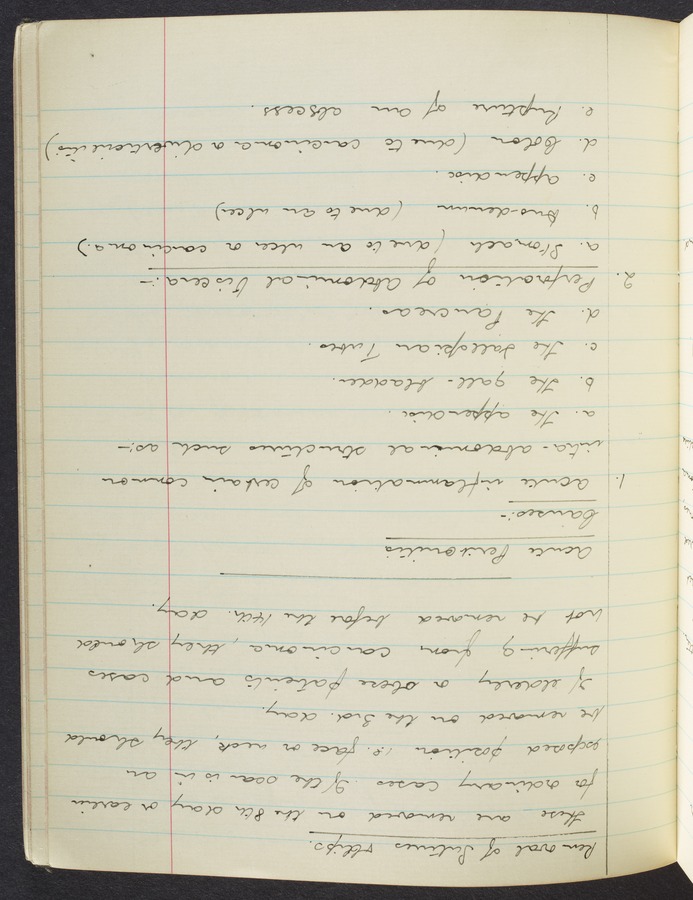 Removal of Sutures & Clips.
These are removed on the 8th day or earlier
for ordinary cases. If the scar is in an
exposed position i.e. face or neck, they should
be removed on the 3rd. day.
If elderly or obese patients and cases
suffering from carcinoma, they should
not be removed before the 14th. day.
Acute Peritonitis
Causes:-
1. Acute inflammation of certain common
intra-abdominal structures such as:-
a. The appendix.
b. The gall-bladder.
c. The Fallopian Tubes.
d. The Pancreas.
2. Perforation of Abdominal Viscera:-
a. Stomach (due to an ulcer or carcinoma.)
b. Duo-denum (due to an ulcer)
c. Appendix.
d. Colon (due to carcinoma or diverticulitis)
e. Rupture of an abscess.